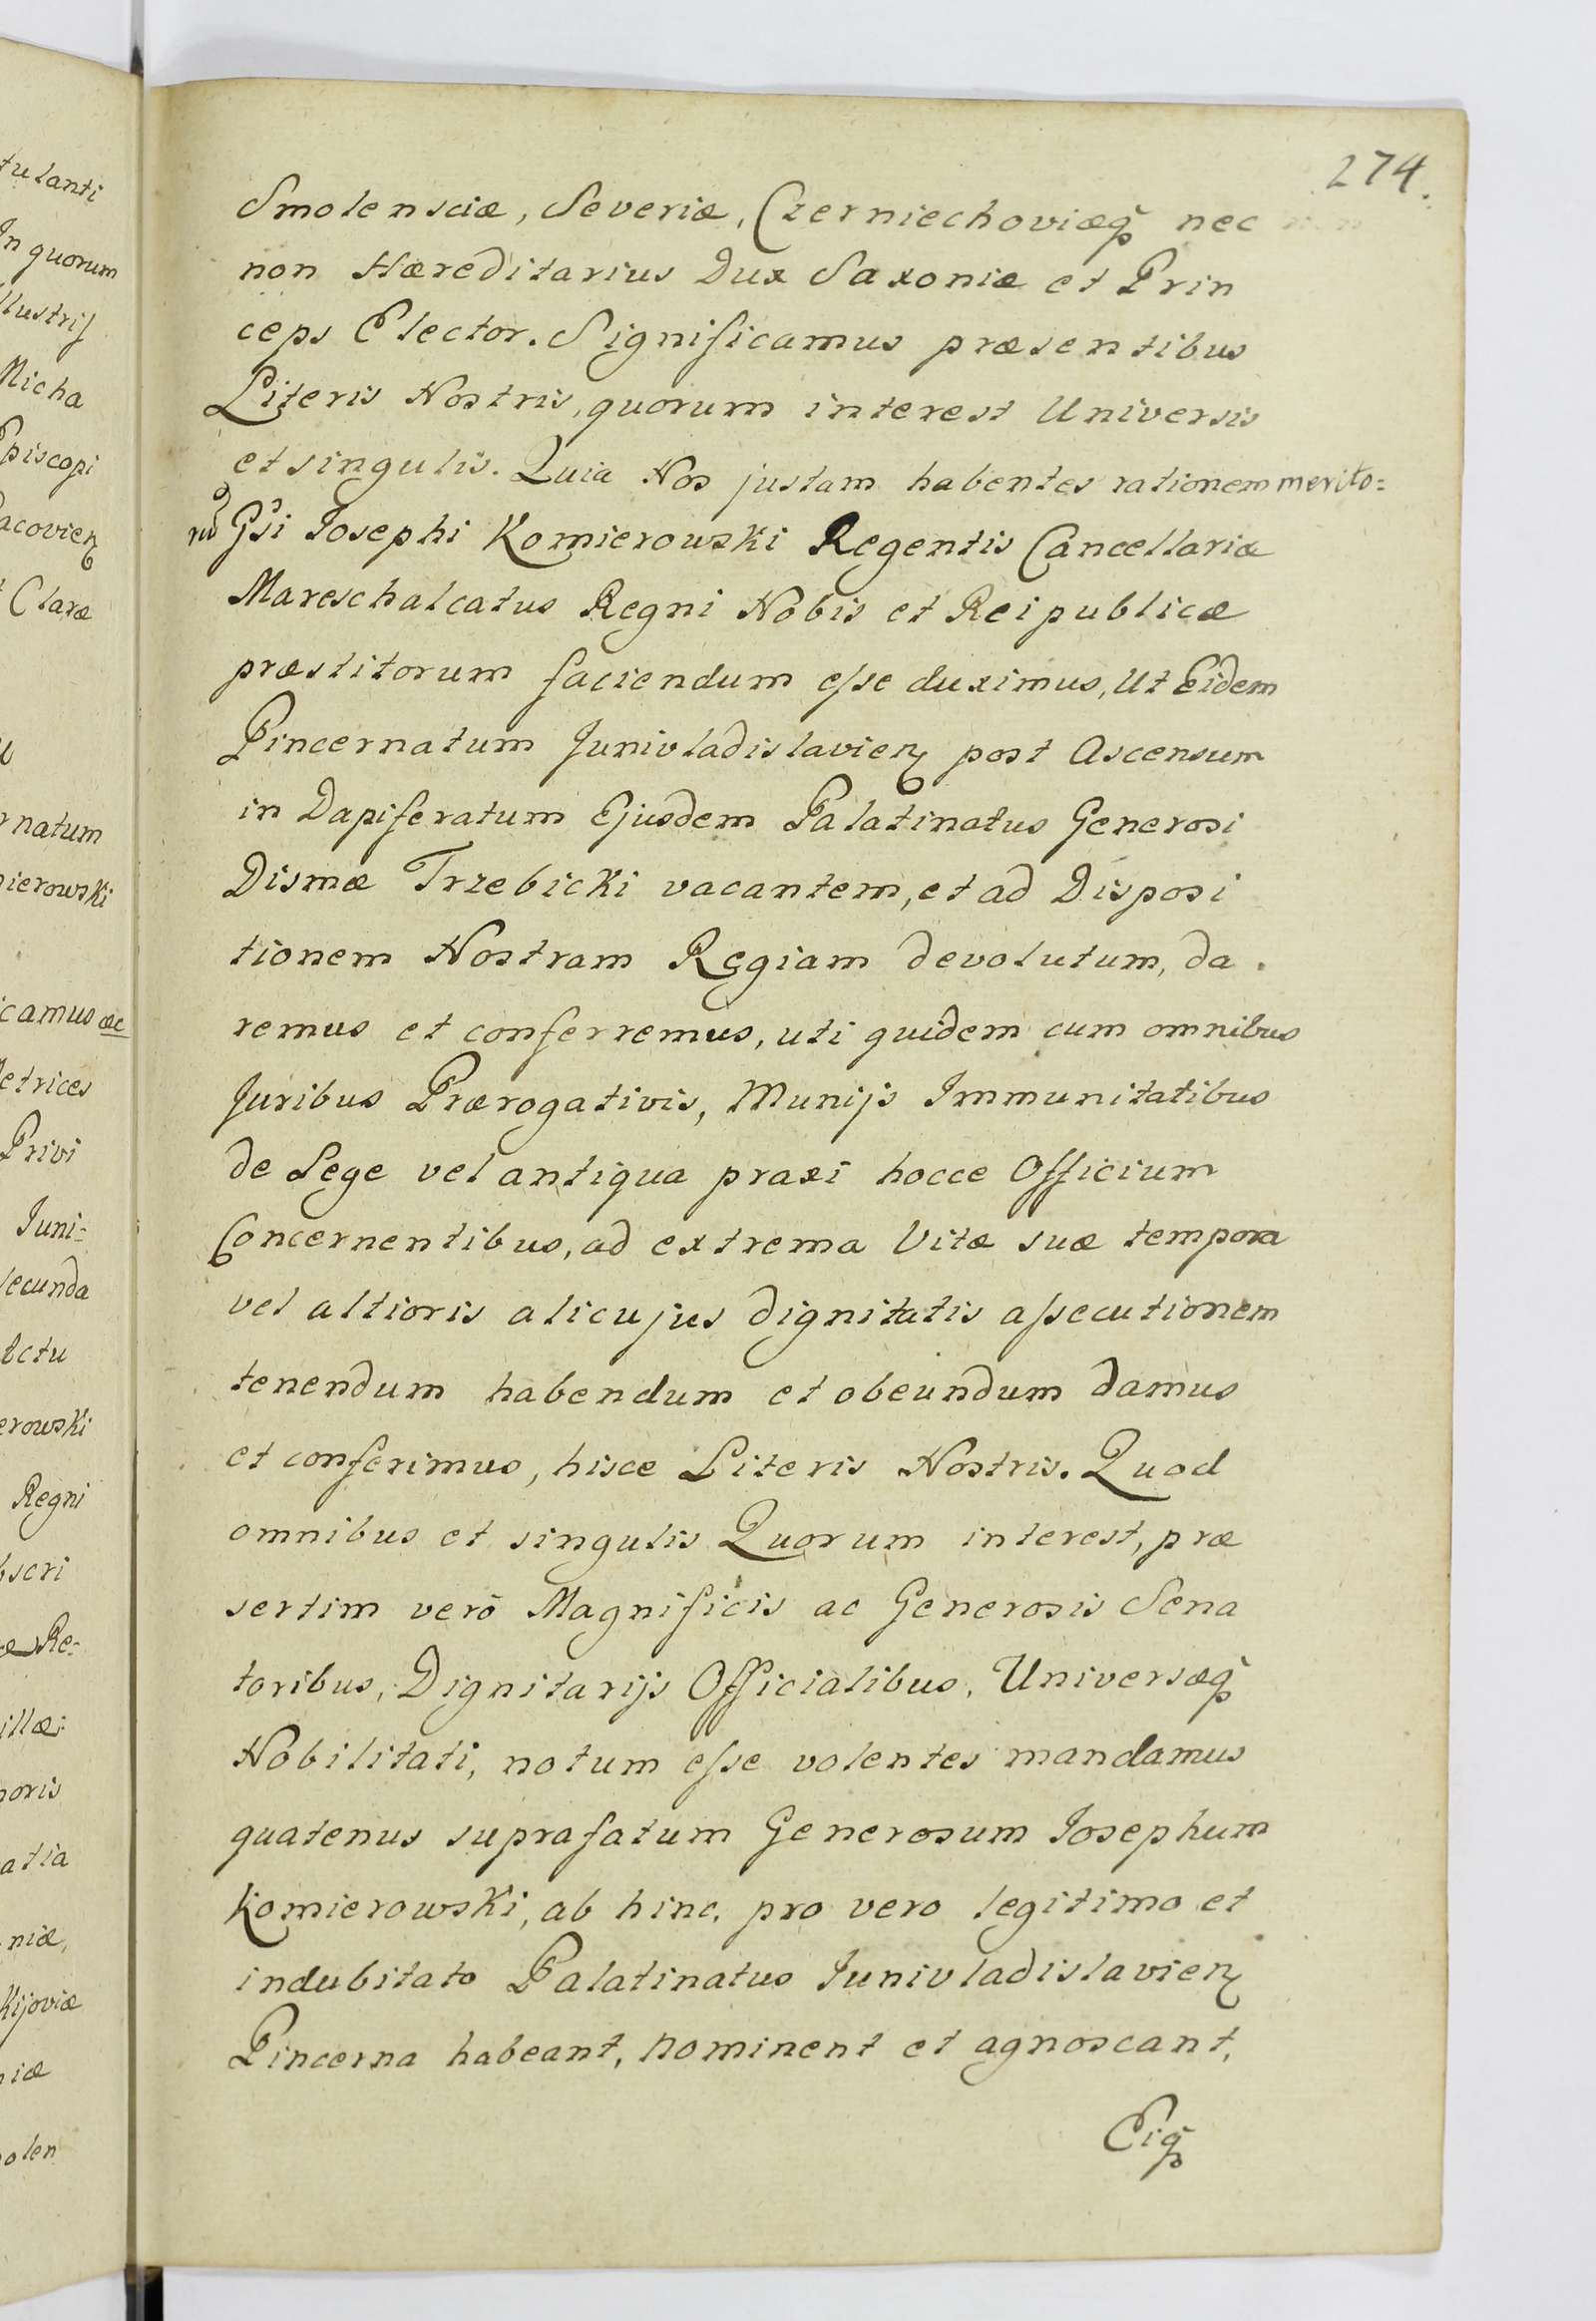 274.
Smolensciæ, Severiæ, Czerniechoviæq̃ nec
non Hæreditarius Dux Saxoniæ et Prin
ceps Elector. Significamus præsentibus
Literis Nostris, quorum interest Universis
et singulis. Quia Nos justam habentes rationem merito=
rũ Gsi Iosephi Komierowski Regentis Cancellariæ
Mareschalcatus Regni Nobis et Reipublicæ
præstitorum faciendum eſse duximus, Ut Eidem
Pincernatum Junivladislavien̄ post Ascensum
in Dapiferatum Ejusdem Palatinatus Generosi
Dismæ Trzebicki vacantem, et ad Disposi
tionem Nostram Regiam devolutum, da
remus et conferremus, uti quidem cum omnibus
Juribus Prærogativis, Munijs Immunitatibus
de Lege vel antiqua praxi hocce Officium
Concernentibus, ad extrema Vitæ suæ tempora
vel altioris alicujus dignitatis aſsecutionem
tenendum habendum et obeundum damus
et conferimus, hisce Literis Nostris. Quod
omnibus et singulis Quorum interest, præ
sertim verò Magnificis ac Generosis Sena
toribus, Dignitarijs Officialibus, Universæq̃
Nobilitati, notum eſse volentes mandamus
quatenus suprafatum Generosum Iosephum
Komierowski, ab hinc, pro vero legitimo et
indubitato Palatinatus Iunivladislavien̄
Pincerna habeant, nominent et agnoscant,
Eiq̃
tulanti
In quorum
llustriſ
Micha
Episcopi
acovien̄
Claræ
rnatum
ierowski
icamus æc
etrices
Privi
Iuni=
ecunda
erowski
Regni
bscri
Re=
illæ
oris
atia
niæ,
Kijoviæ
iæ
olen